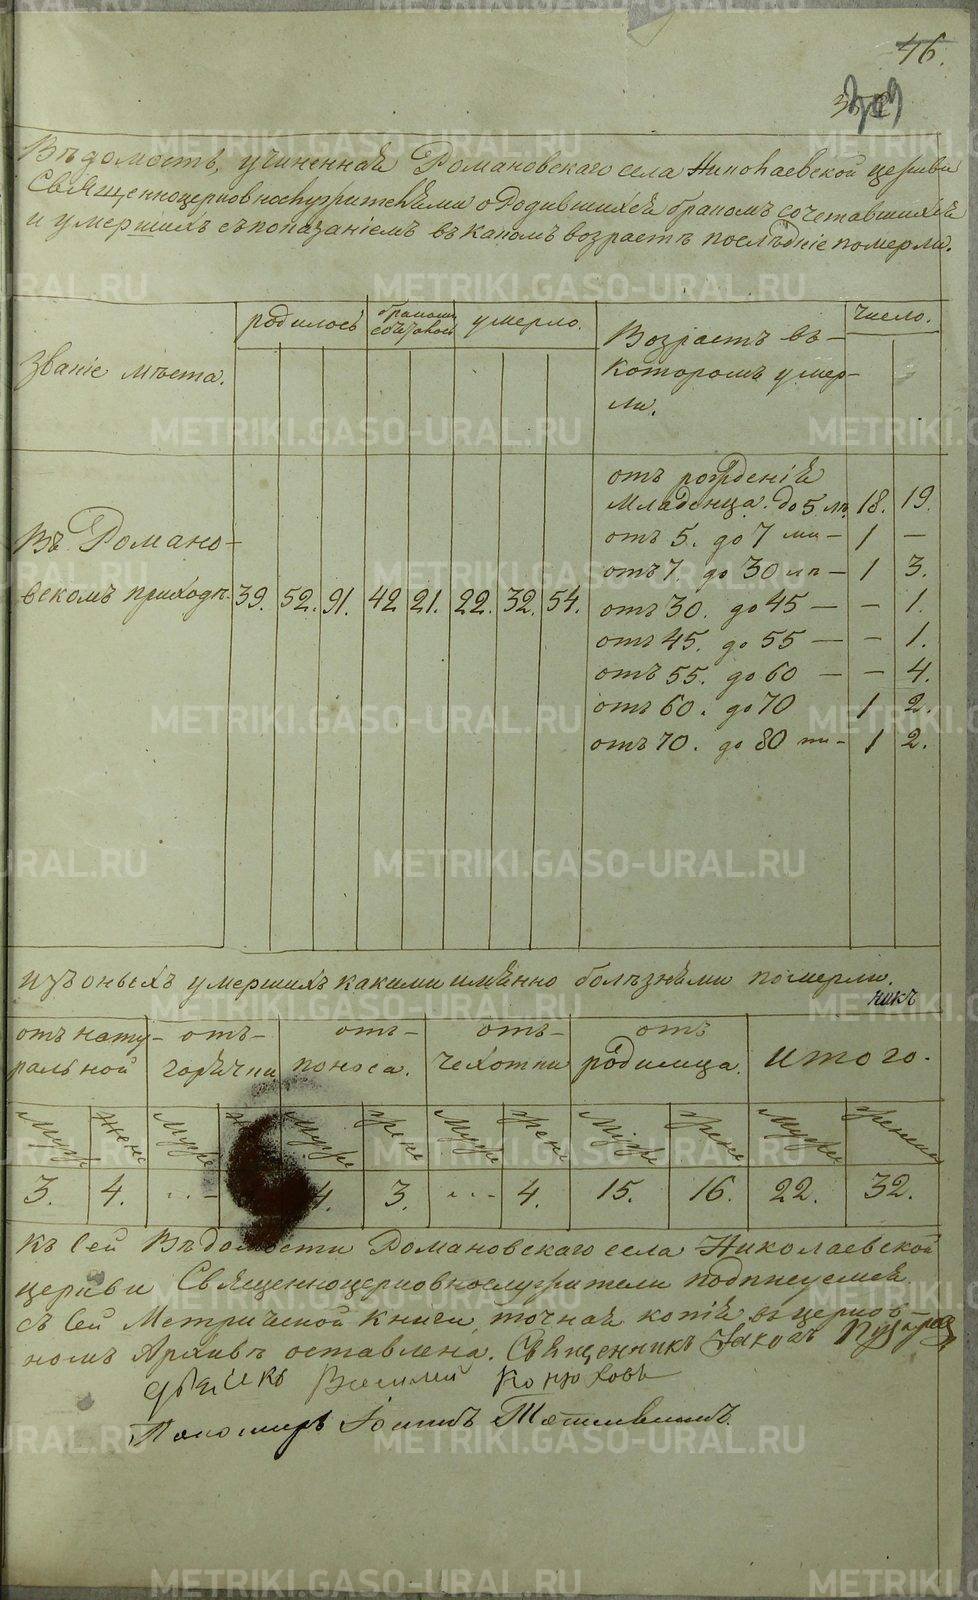 46.
Вѣдомость, учиненная Романовскаго села Николаевской церкви
Священноцерковнослужителями о Родившихся бракомъ сочетавшихся
и умершихъ съ показаніемъ въ какомъ возрастѣ послѣдніе померли.
Званіе мѣста.
родилось
бракомъ сочетавось
умерло.
Возрастъ въ
которомъ умер-
ли.
число.
отъ рожденія
Младенца. до 5 лѣ 18. 19.
отъ 5. до 7 ми – 1 –
отъ 7. до 30 – 1 3.
отъ 30. до 45 – – 1.
отъ 45. до 55 – – 1.
отъ 55. до 60 – – 4.
отъ 60. до 70 1 2.
отъ 70. до 80 ти – 1 2.
Въ Романо-
вскомъ приходѣ. 39. 52. 91. 42 21. 22. 32. 54.
изъ оныхъ умершихъ какими имянно болѣзнями померли.
отъ нату-
ральной
отъ-
горячки
отъ-
поноса.
отъ-
чехотки
отъ
родимца.
итого.
Муже Жене Муже Муже Жене Муже Жене Муже Жене Мужи Женни
3. 4. ...- 4. 3. ...- 4. 15. 16. 22. 32.
Къ сей Вѣдомости Романовскаго села Николаевской
церкви Священноцерковнослужители подписуемся
съ сей Метрической Книги точная копія въ церков-
номъ Архивѣ оставлена. Священникъ
Дьячекъ Василей Конюховъ
Пономарь
METRIKI.GASO-URAL.RU